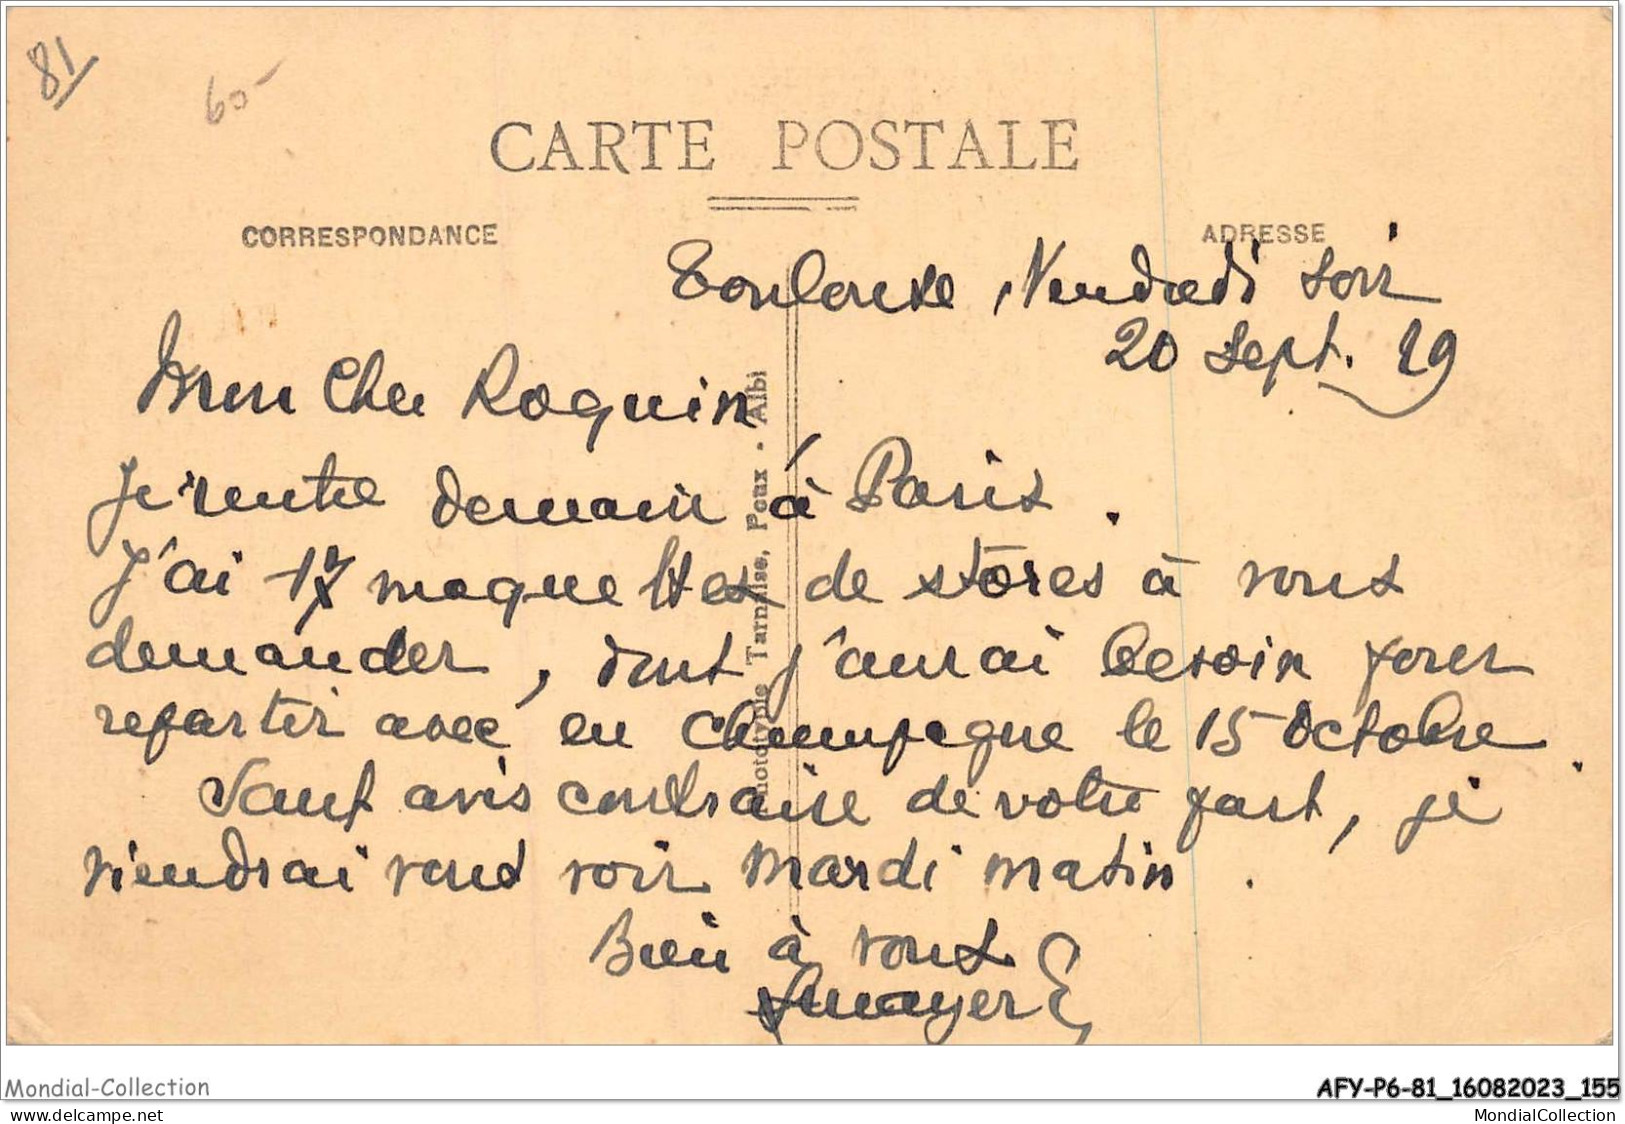 81
60-
CARTE POSTALE
CORRESPONDANCE
ADRESSE
Toulouse, Vendredi soir
20 Sept. 29
Mon Cher Roquin
Je rentre demain à Paris.
J'ai 17 maquettes de stores à vous
demander, dont j'aurai besoin pour
repartir avec en Champagne le 15 Octobre.
Sauf avis contraire de votre part, je
viendrai vous voir Mardi matin.
Bien à vous
Phototypie Tarnaise, Poux - Albi
Mondial-Collection
AFY-P6-81_16082023_155
MondialCollection